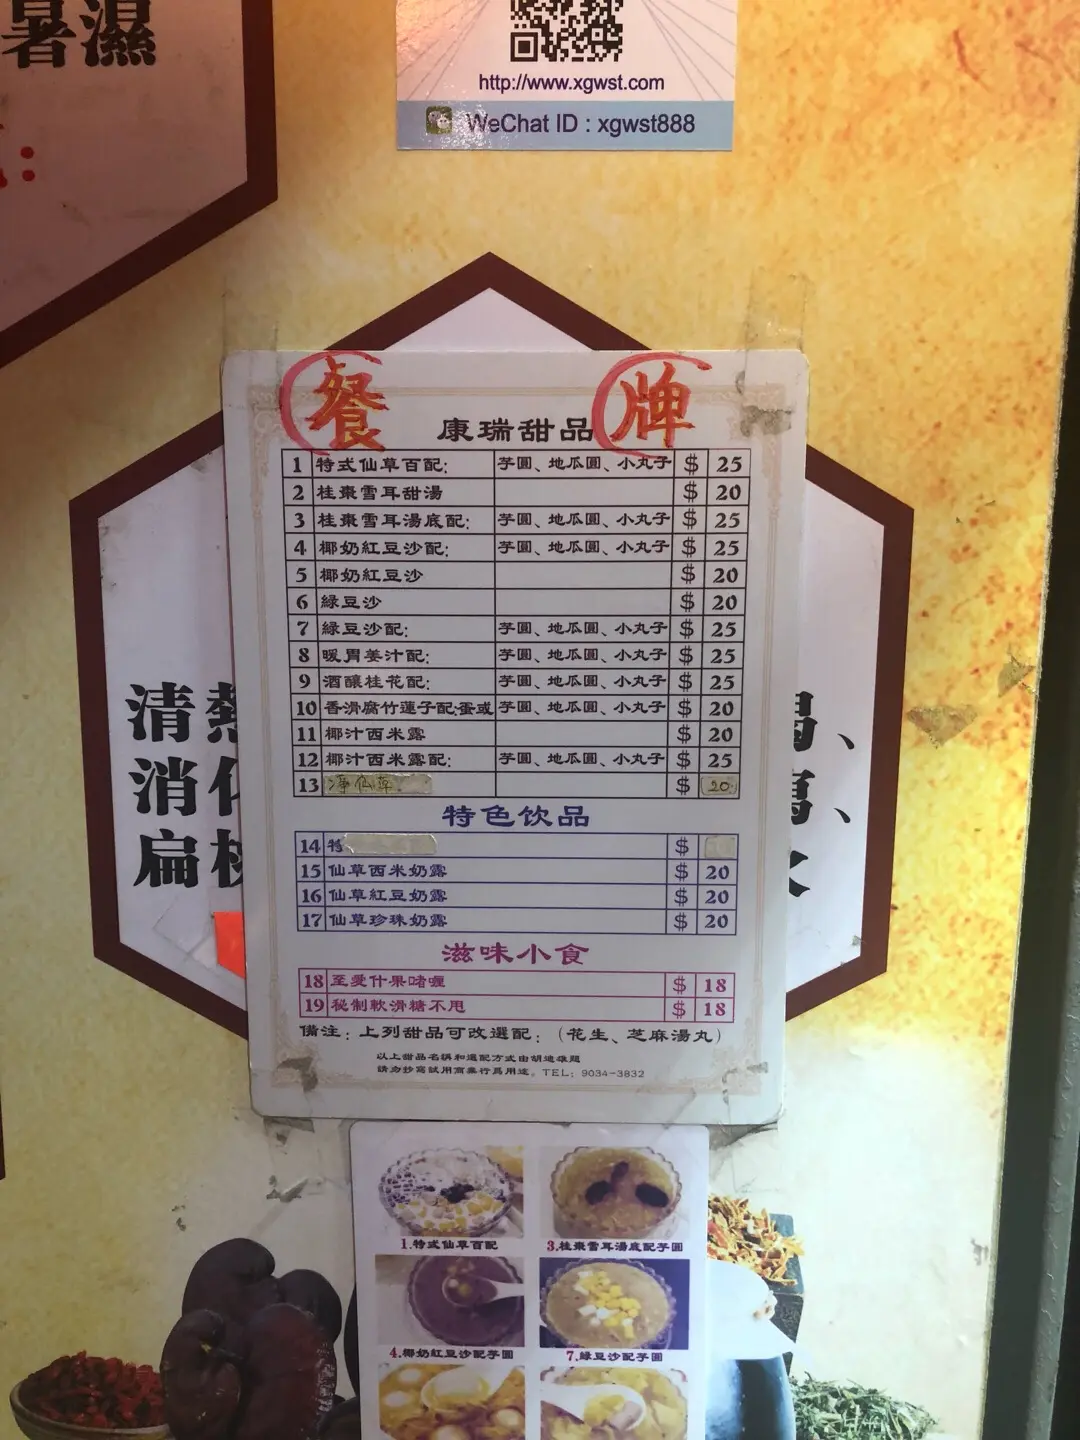 暑濕
http://www.xgwst.com
WeChat ID : xgwst888
餐 牌
康瑞甜品
1 特式仙草百配: 芋圓、地瓜圓、小丸子 $ 25
2 桂棗雪耳甜湯 $ 20
3 桂棗雪耳湯底配: 芋圓、地瓜圓、小丸子 $ 25
4 椰奶紅豆沙配: 芋圓、地瓜圓、小丸子 $ 25
5 椰奶紅豆沙 $ 20
6 綠豆沙 $ 20
7 綠豆沙配: 芋圓、地瓜圓、小丸子 $ 25
8 暖胃姜汁配: 芋圓、地瓜圓、小丸子 $ 25
9 酒釀桂花配: 芋圓、地瓜圓、小丸子 $ 25
10 香滑腐竹蓮子配:蛋或 芋圓、地瓜圓、小丸子 $ 20
11 椰汁西米露 $ 20
12 椰汁西米露配: 芋圓、地瓜圓、小丸子 $ 25
13 淨仙草 $ 20
特色饮品
14 特 $
15 仙草西米奶露 $ 20
16 仙草紅豆奶露 $ 20
17 仙草珍珠奶露 $ 20
滋味小食
18 至愛什果啫喱 $ 18
19 秘制軟滑糖不甩 $ 18
備注：上列甜品可改選配：（花生、芝麻湯丸）
以上甜品名稱和選配方式由胡迪雄題
請勿抄寫試用商業行爲用途。TEL: 9034-3832
清熱
消
扁桃
、
、
1.特式仙草百配 3.桂棗雪耳湯底配芋圓
4.椰奶紅豆沙配芋圓 7.綠豆沙配芋圓